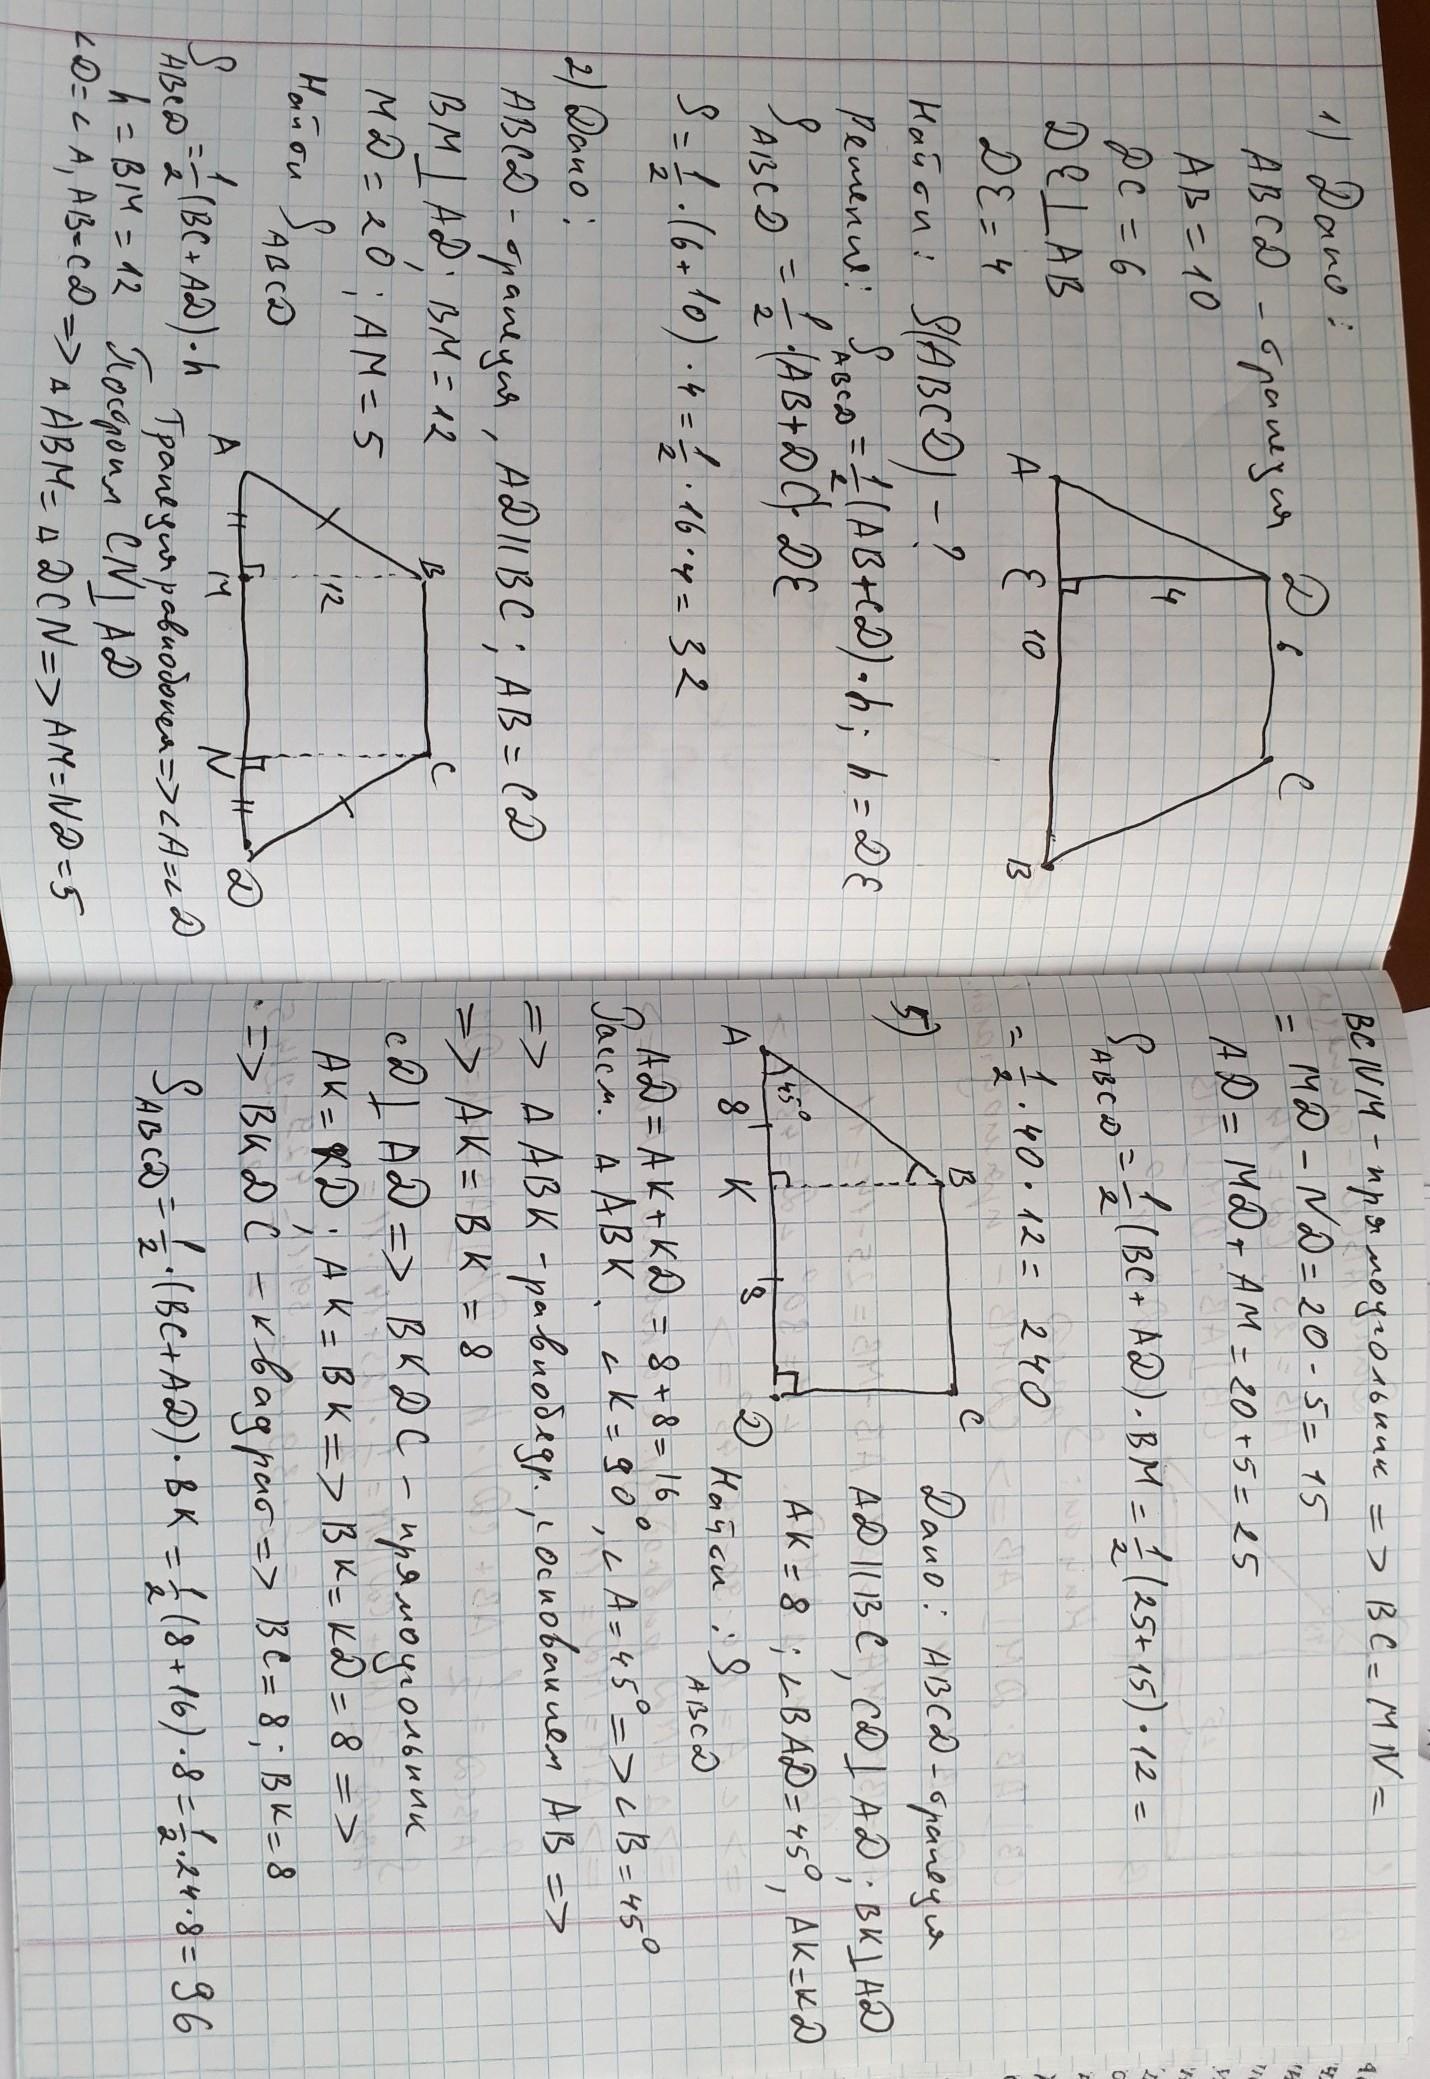 1) Дано:
ABCD - трапеция
AB = 10
DC = 6
DE ⊥ AB
DE = 4
D 6 C
4
A E 10 B
Найти: S(ABCD) - ?
Решение: S ABCD = 1/2 (AB+CD)·h; h = DE
S ABCD = 1/2 · (AB+DC)· DE
S = 1/2 · (6+10) · 4 = 1/2 · 16 · 4 = 32
2) Дано:
ABCD - трапеция, AD || BC; AB = CD
BM ⊥ AD; BM = 12
MD = 20; AM = 5
Найти S ABCD
B C
12
A M N D
S ABCD = 1/2 (BC+AD)·h Трапеция равнобокая => ∠A = ∠D
h = BM = 12 Построим CN ⊥ AD
∠D = ∠A, AB = CD => ΔABM = ΔDCN => AM = ND = 5
BCNM - прямоугольник => BC = MN =
= MD - ND = 20 - 5 = 15
AD = MD + AM = 20 + 5 = 25
S ABCD = 1/2 (BC + AD) · BM = 1/2 (25+15) · 12 =
= 1/2 · 40 · 12 = 240
5)
B C
45°
A 8 K 8 D
Дано: ABCD - трапеция
AD || BC, CD ⊥ AD; BK ⊥ AD
AK = 8; ∠BAD = 45°, AK = KD
Найти: S ABCD
AD = AK + KD = 8 + 8 = 16
Рассм. Δ ABK. ∠K = 90°, ∠A = 45° => ∠B = 45°
=> Δ ABK - равнобедр., с основанием AB =>
=> AK = BK = 8
CD ⊥ AD => BKDC - прямоугольник
AK = KD; AK = BK => BK = KD = 8 =>
=> BKDC - квадрат => BC = 8; BK = 8
S ABCD = 1/2 · (BC + AD) · BK = 1/2 (8+16) · 8 = 1/2 · 24 · 8 = 96